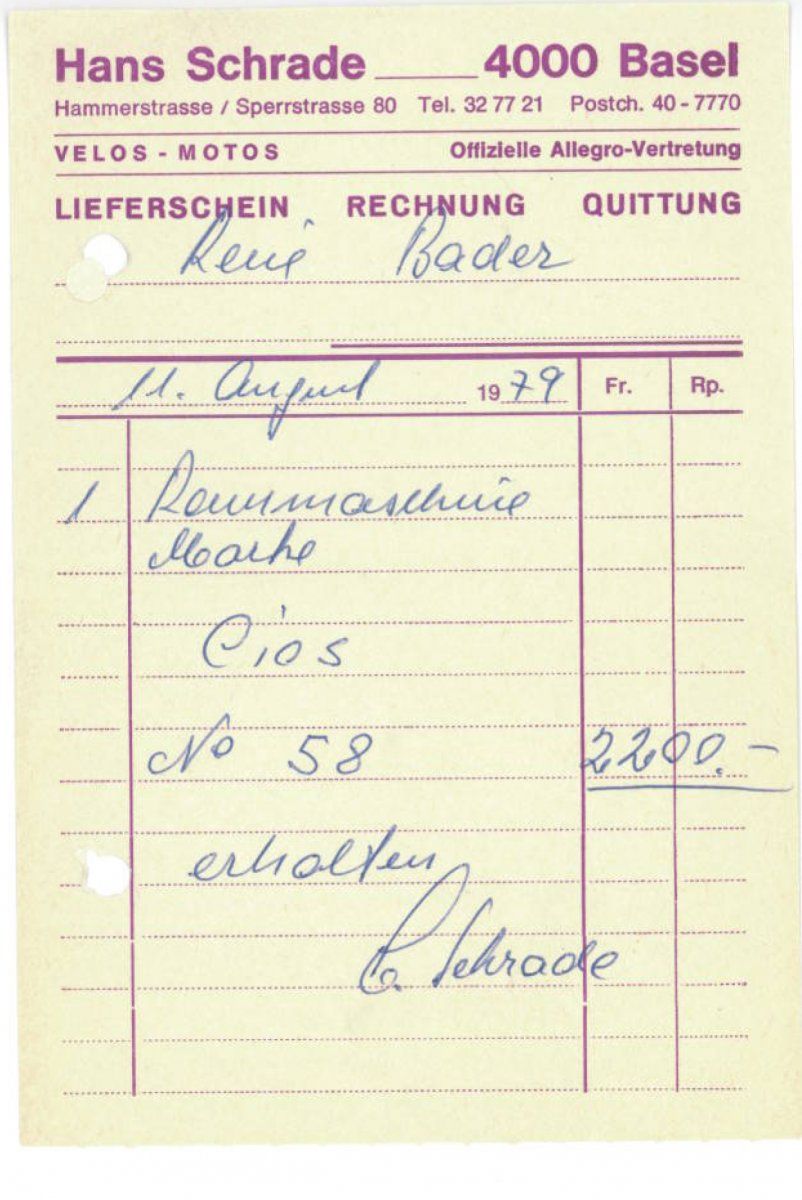 Hans Schrade 4000 Basel
Hammerstrasse / Sperrstrasse 80 Tel. 32 77 21 Postch. 40-7770
VELOS - MOTOS Offizielle Allegro-Vertretung
LIEFERSCHEIN RECHNUNG QUITTUNG
René Bader
11. August 1979 Fr. Rp.
1 Rennmaschine
Marke
Cios
No 58 2200.-
erhalten
C. Schrade